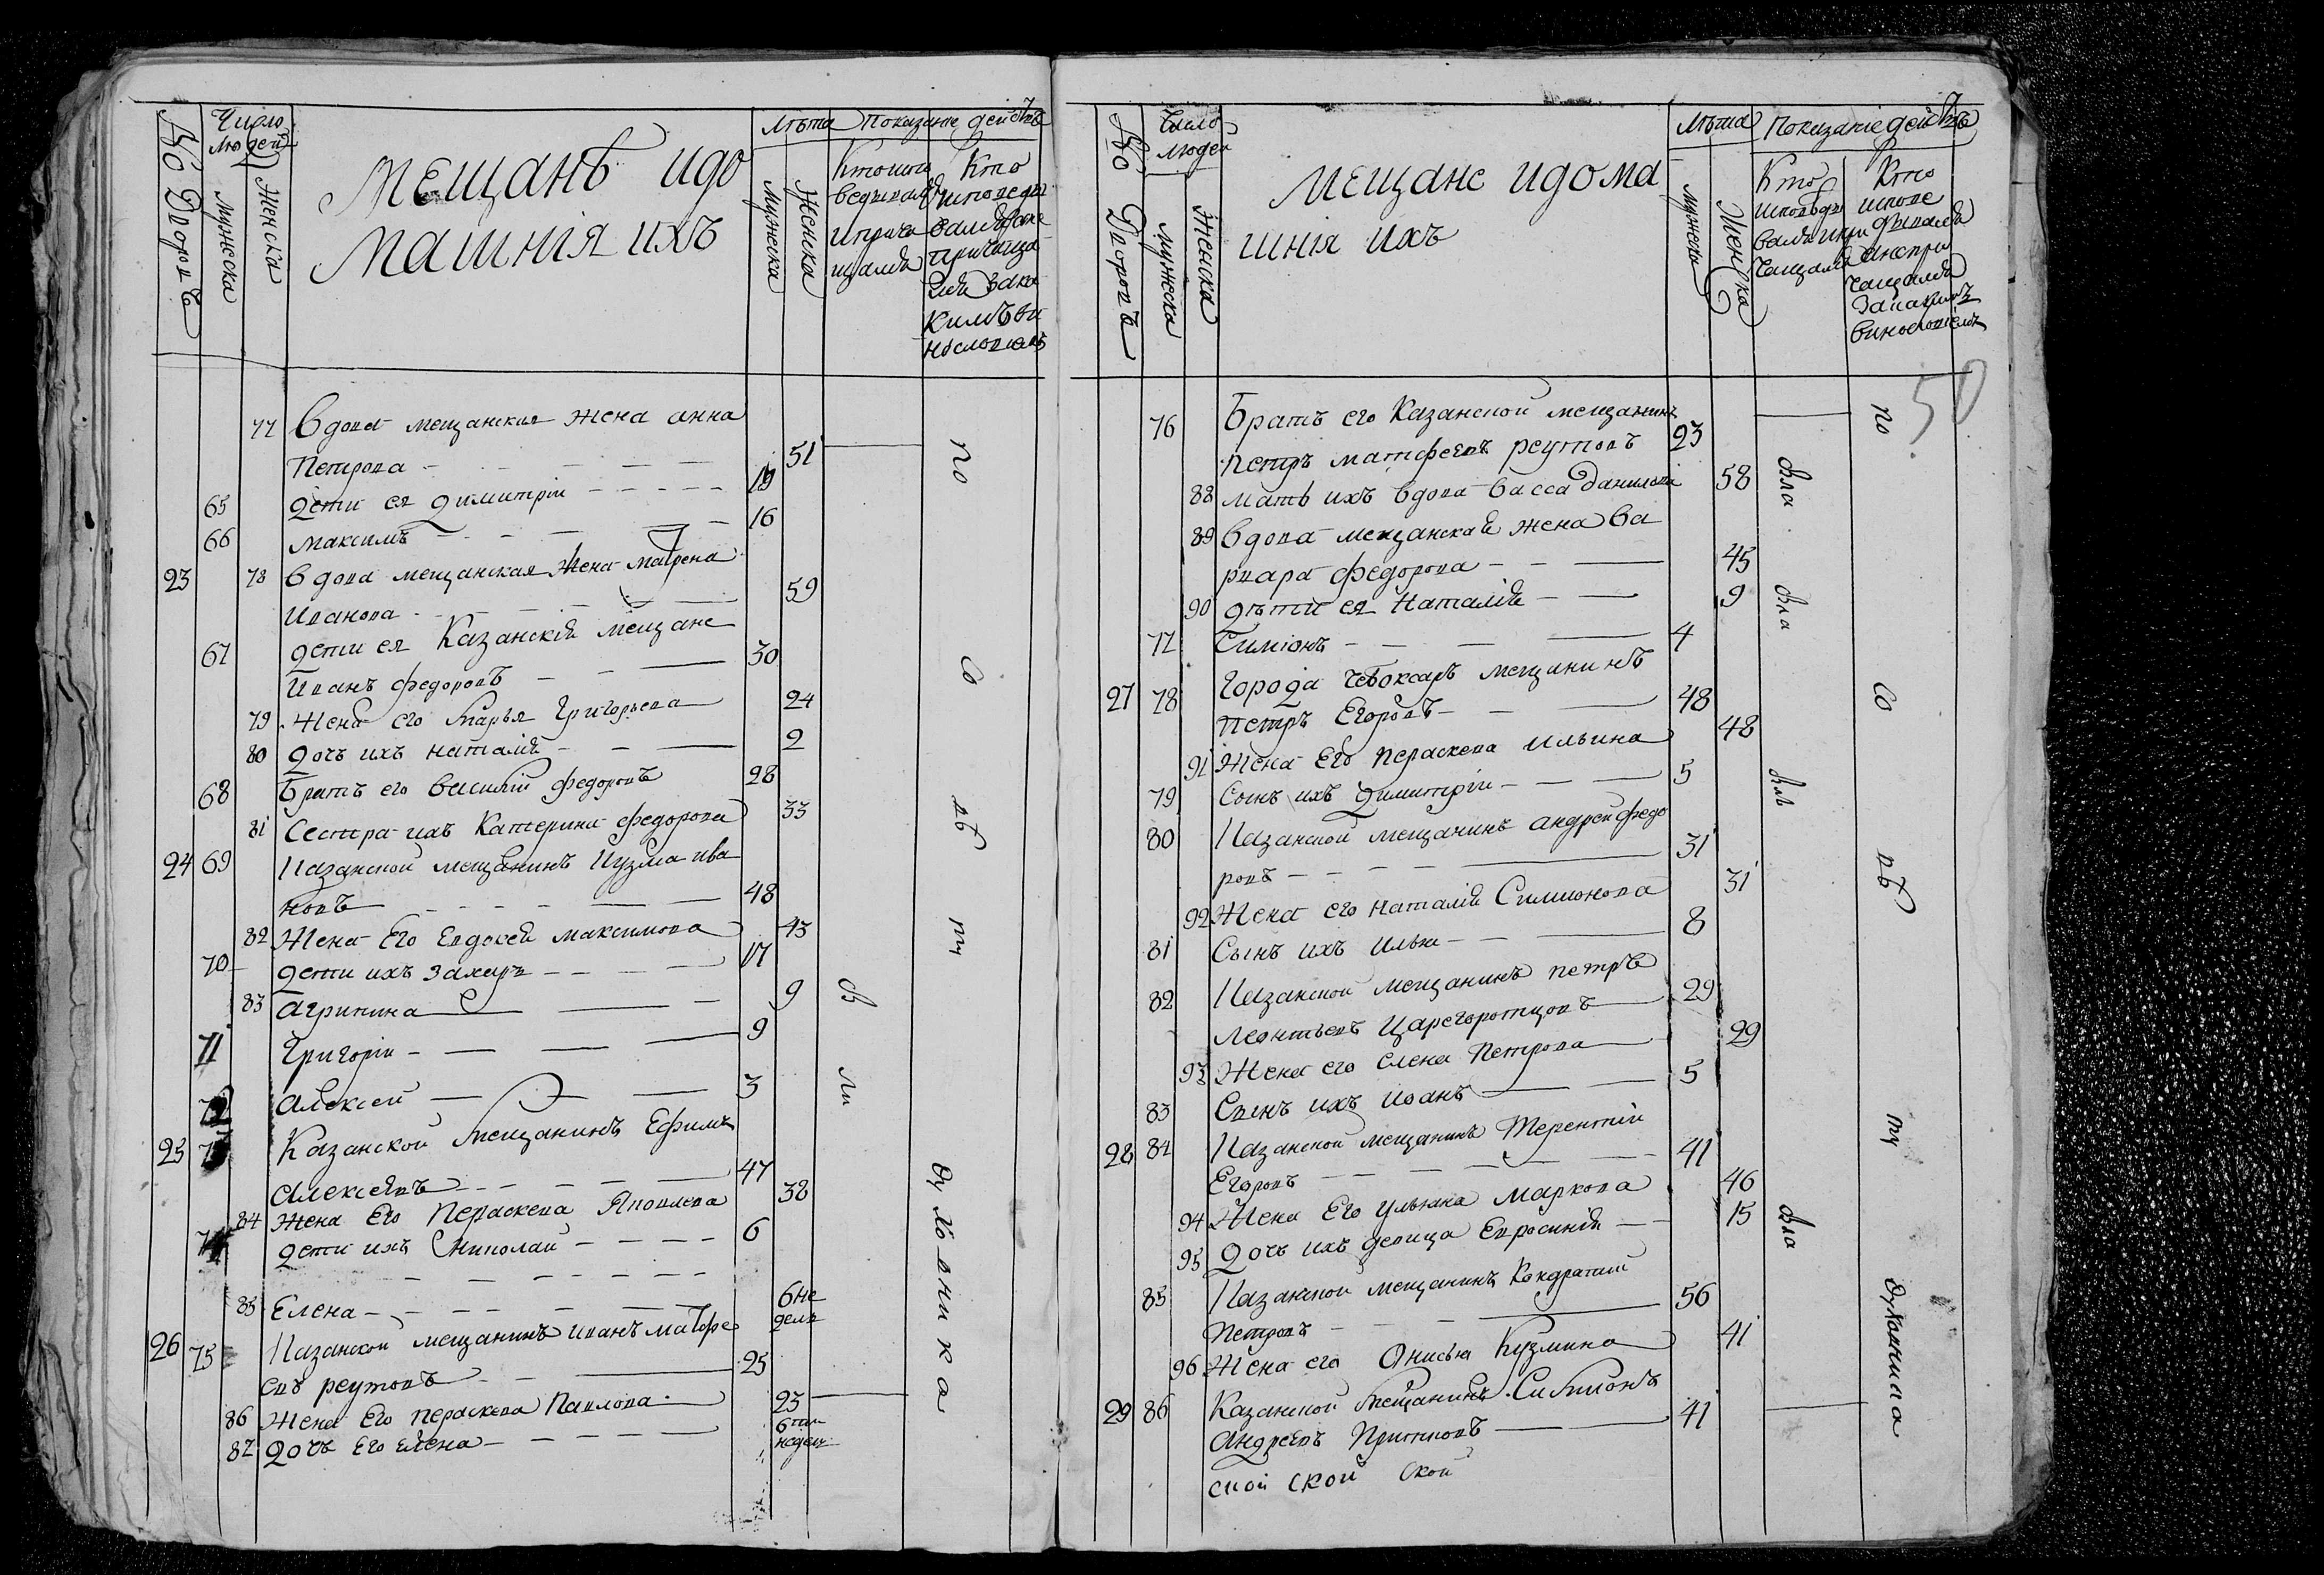 Число
людей
No Дворовъ
мужеска
Женска
Мещанъ идо
машнія ихъ
Лѣта
мужеска
Женска
Показаніе действъ
Кто
77 вдова мещанская жена анна
Петрова - - - - 51
65 дети ея димитріи - - - - - 19
66 максимъ - - - - 16
23 78 вдова мещанская жена матрена
Иванова - - - - 59
67 дети ея Казанскія мещане
Иванъ федоровъ - - - 30
79 жена его Марья Григорьева 24
80 дочь ихъ наталія - - - 2
68 Братъ его василій федоровъ 28
81 Сестра ихъ Катерина федорова 33
24 69 Казанской мещанинъ Кузма ива
новъ - - - - 48
82 Жена Его Евдокея максимова 43
70 дети ихъ захаръ - - - - 17
83 агрипина - - 9
71 Григоріи - - - - 9
72 алексеи - - - 3
25 73 Казанской мещанинъ Ефимъ
алексеевъ - - - - 47
84 жена Его Пераскева Яковлева 38
74 дети ихъ Николаи - - - - 6
85 Елена - - - - - 6 не
дель
26 75 Казанской мещанинъ иванъ матфе
евъ реутовъ - - 25
86 Жена Его пераскева Павлова 23
87 дочь Его елена - - - - - 6ти
недель
по со въ ту
духовника
Число
людей
No Дворовъ
мужеска
Женска
мещане идома
шнія ихъ
Лѣта
мужеска
Женска
Показаніе действъ
Кто
Кто
испове
дывался
50
76 Братъ его Казанской мещанинъ
петръ матфеевъ реутовъ 23
88 мать ихъ вдова васса данилова 58
89 вдова мещанская жена ва
рвара федорова - - - 45
90 дѣти ея Наталія - - 9
77 Симіонъ - - - 4
27 78 города чебоксаръ мещанинъ
петръ Егоровъ - - - 48
91 Жена Его пераскева ильина 48
79 Сынъ ихъ димитріи - - - 5
80 Казанской мещанинъ андреи федо
ровъ - - - - 31
92 Жена его наталія Симионова 31
81 Сынъ ихъ илья - - - 8
82 Казанской мещанинъ петръ
леонтьевъ Царегоротцовъ 29
93 Жена его елена Петрова 29
83 Сынъ ихъ иоанъ - - 5
28 84 Казанской мещанинъ Терентіи
Егоровъ - - - - 41
94 Жена Его ульяна маркова 46
95 Дочь ихъ девица Евросинія - - 15
85 Казанской мещанинъ Кондратии
Петровъ - - - 56
96 Жена его Анисья Кузмина 41
29 86 Казанской мещанинъ Симионъ
андреевъ - 41
ской ской ской
по со въ ту
духовника